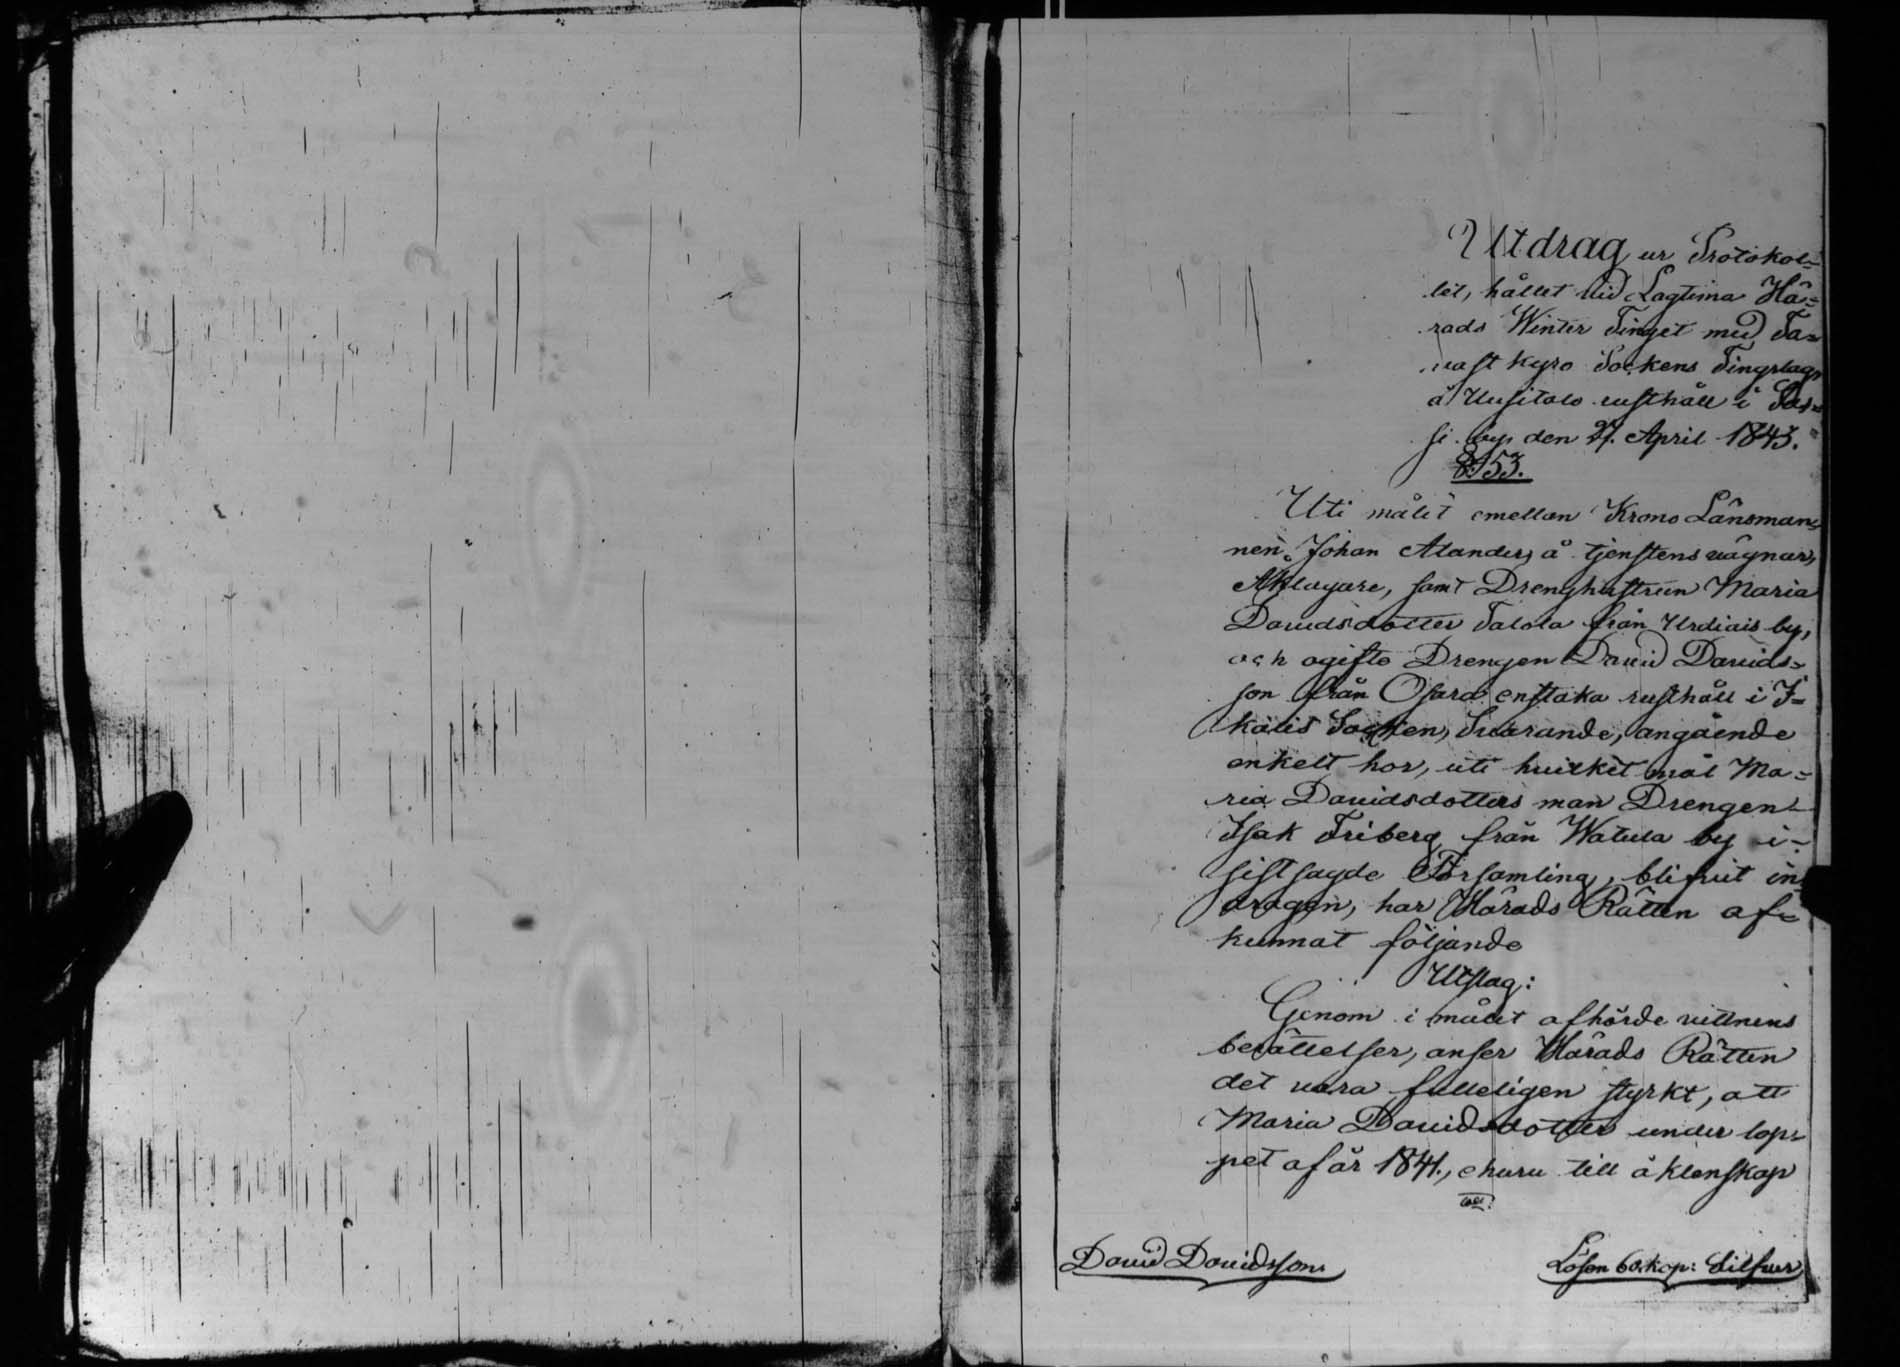 Utdrag ur Protokol=
let, hållet vid Lagtima Hä=
rads Winter Tinget med Ta=
vastkyro Sockens Tingslag,
å Uusitalo rusthåll i Sas=
si by, den 27. April 1843.
§. 153.
Uti målet emellan Krono Länsman=
nen Johan Alander, å tjenstens vägnar,
Åklagare, samt Drenghustrun Maria
Davidsdotter Talola från Urdiais by,
och ogifte Drengen David Davids=
son från Osara enstaka rusthåll i I=
kalis Socken, Svarande, angående
enkelt hor, uti hvilket mål Ma=
ria Davidsdotters man Drengen
Isak Friberg från Watula by i
sistsagde Församling, blifvit in
dragen, har Härads Rätten af=
kunnat följande
Utslag:
Genom i målet afhörde vittnens
berättelser, anser Härads Rätten
det vara fulleligen styrkt, att
Maria Davidsdotter under lop=
pet af år 1841, ehuru till äktenskap
David Davidsson.
Lösen 60. kop: Silfver